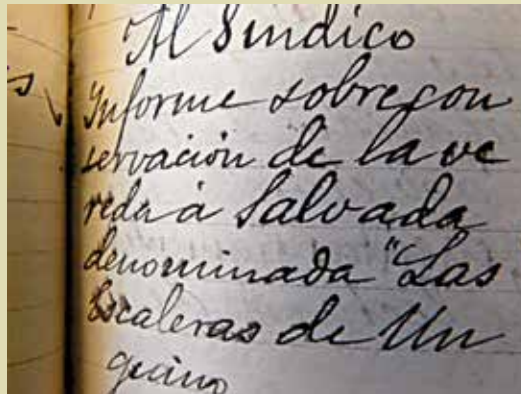 Al Sindico
Informe sobre con
servación de la ve
reda á Salvada
denominada "Las
Escaleras de Un
guino